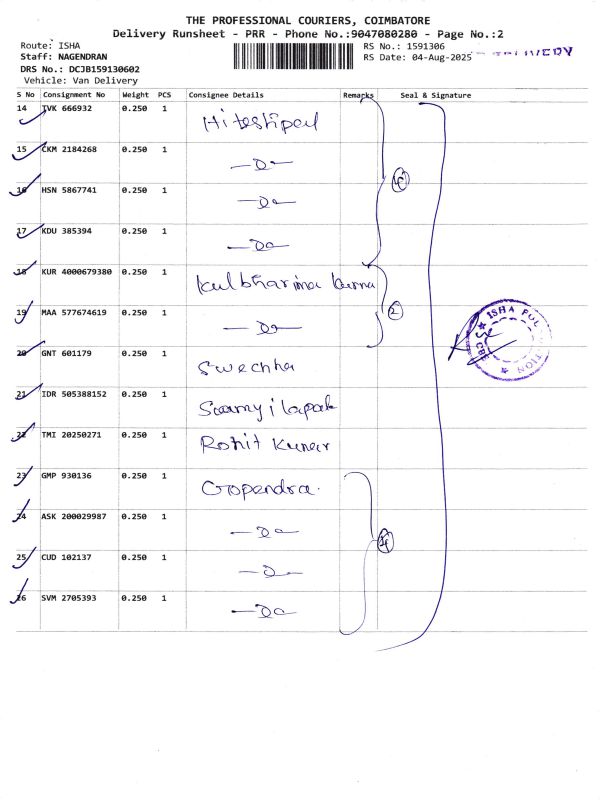 THE PROFESSIONAL COURIERS, COIMBATORE
Delivery Runsheet - PRR - Phone No.:9047080280 - Page No.:2
Route: ISHA
Staff: NAGENDRAN
DRS No.: DCJB159130602
Vehicle: Van Delivery
RS No.: 1591306
RS Date: 04-Aug-2025
S No Consignment No Weight PCS Consignee Details Remarks Seal & Signature
14 IVK 666932 0.250 1 Hiteshpal
15 CKM 2184268 0.250 1 —Do—
16 HSN 5867741 0.250 1 —Do—
17 KDU 385394 0.250 1 —Do—
18 KUR 4000679380 0.250 1
19 MAA 577674619 0.250 1 —Do— 2
20 GNT 601179 0.250 1 Swechha
21 IDR 505388152 0.250 1
22 TMI 20250271 0.250 1 Rohit Kumar
23 GMP 930136 0.250 1 Gopendra.
24 ASK 200029987 0.250 1 —Do— 4
25 CUD 102137 0.250 1 —Do—
26 SVM 2705393 0.250 1 —Do—
ISHA